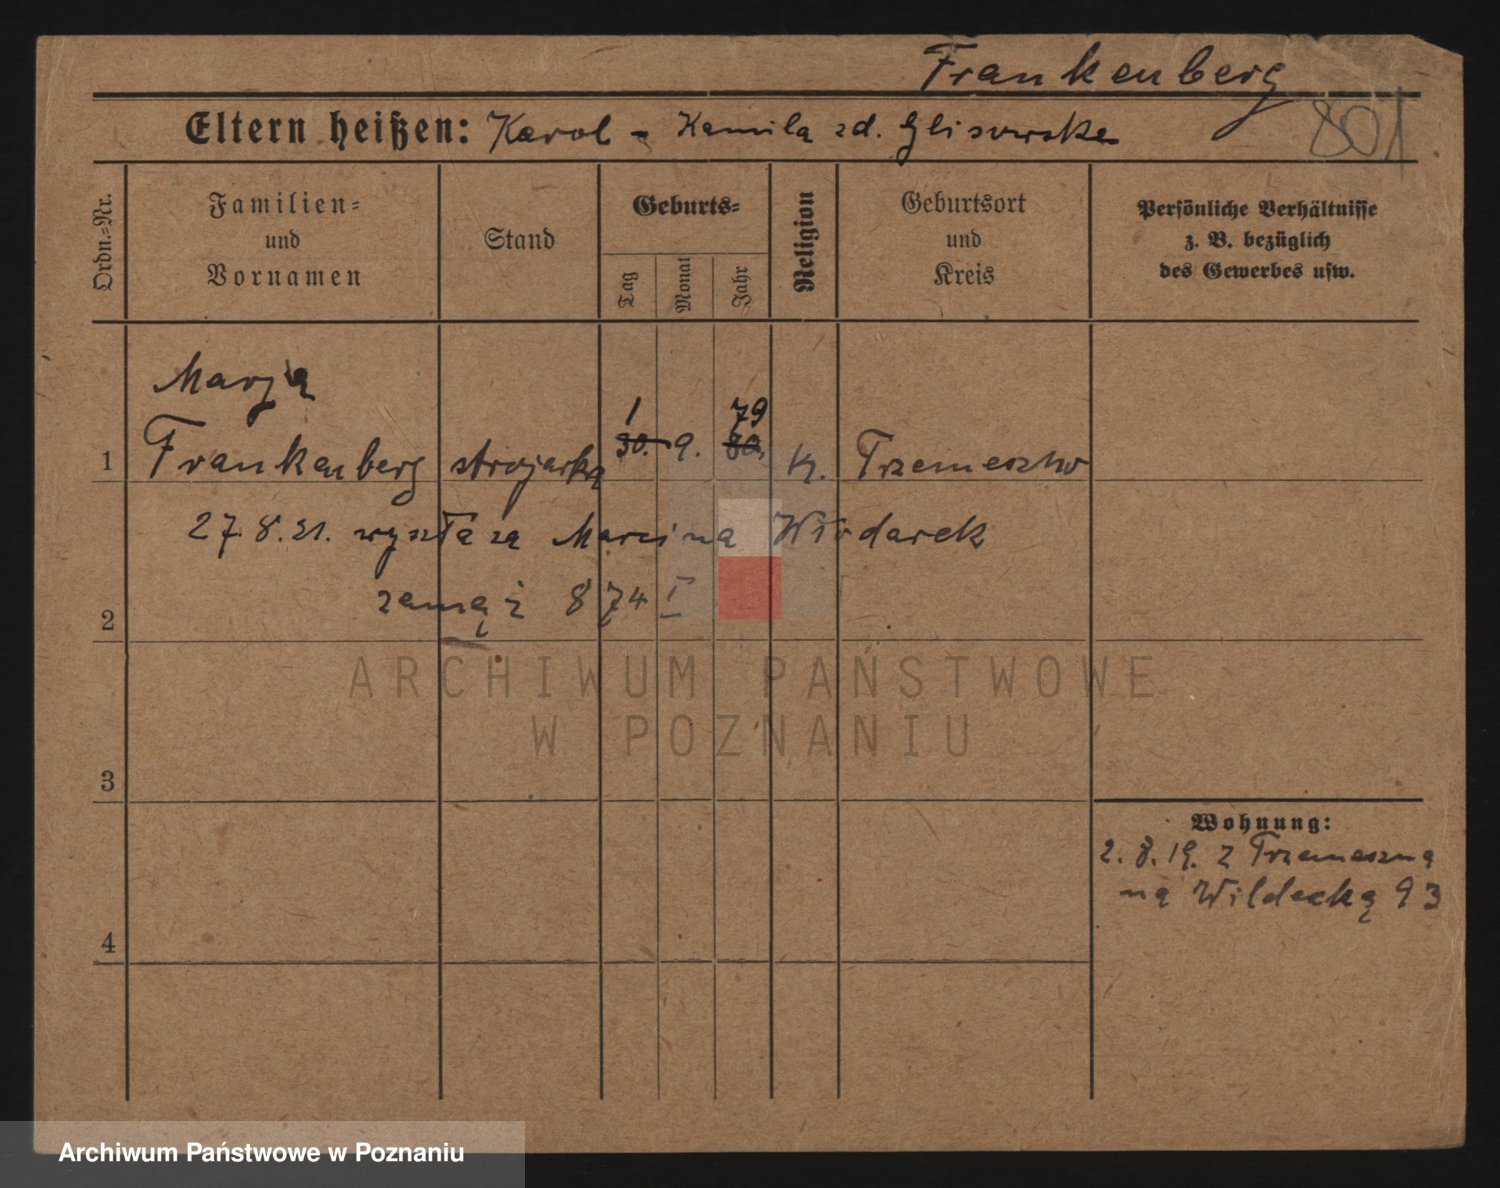 Frankenberg
801
Eltern heißen: Karol - Kamila zd. Glisowska
Ordn.-Nr.
Familien-
und
Vornamen
Stand
Geburts-
Tag
Monat
Jahr
Religion
Geburtsort
und
Kreis
Persönliche Verhältnisse
z. B. bezüglich
des Gewerbes usw.
Marja
1 79
1 Frankenberg strojarka 30. 9. 80. k. Trzemeszno
27.8.21. wyszła za Marcina Włodarek
2 zamąż 874 I
ARCHIWUM PAŃSTWOWE
W POZNANIU
3
Wohnung:
2.8.19. z Trzemeszna
na Wildecką 93
4
Archiwum Państwowe w Poznaniu